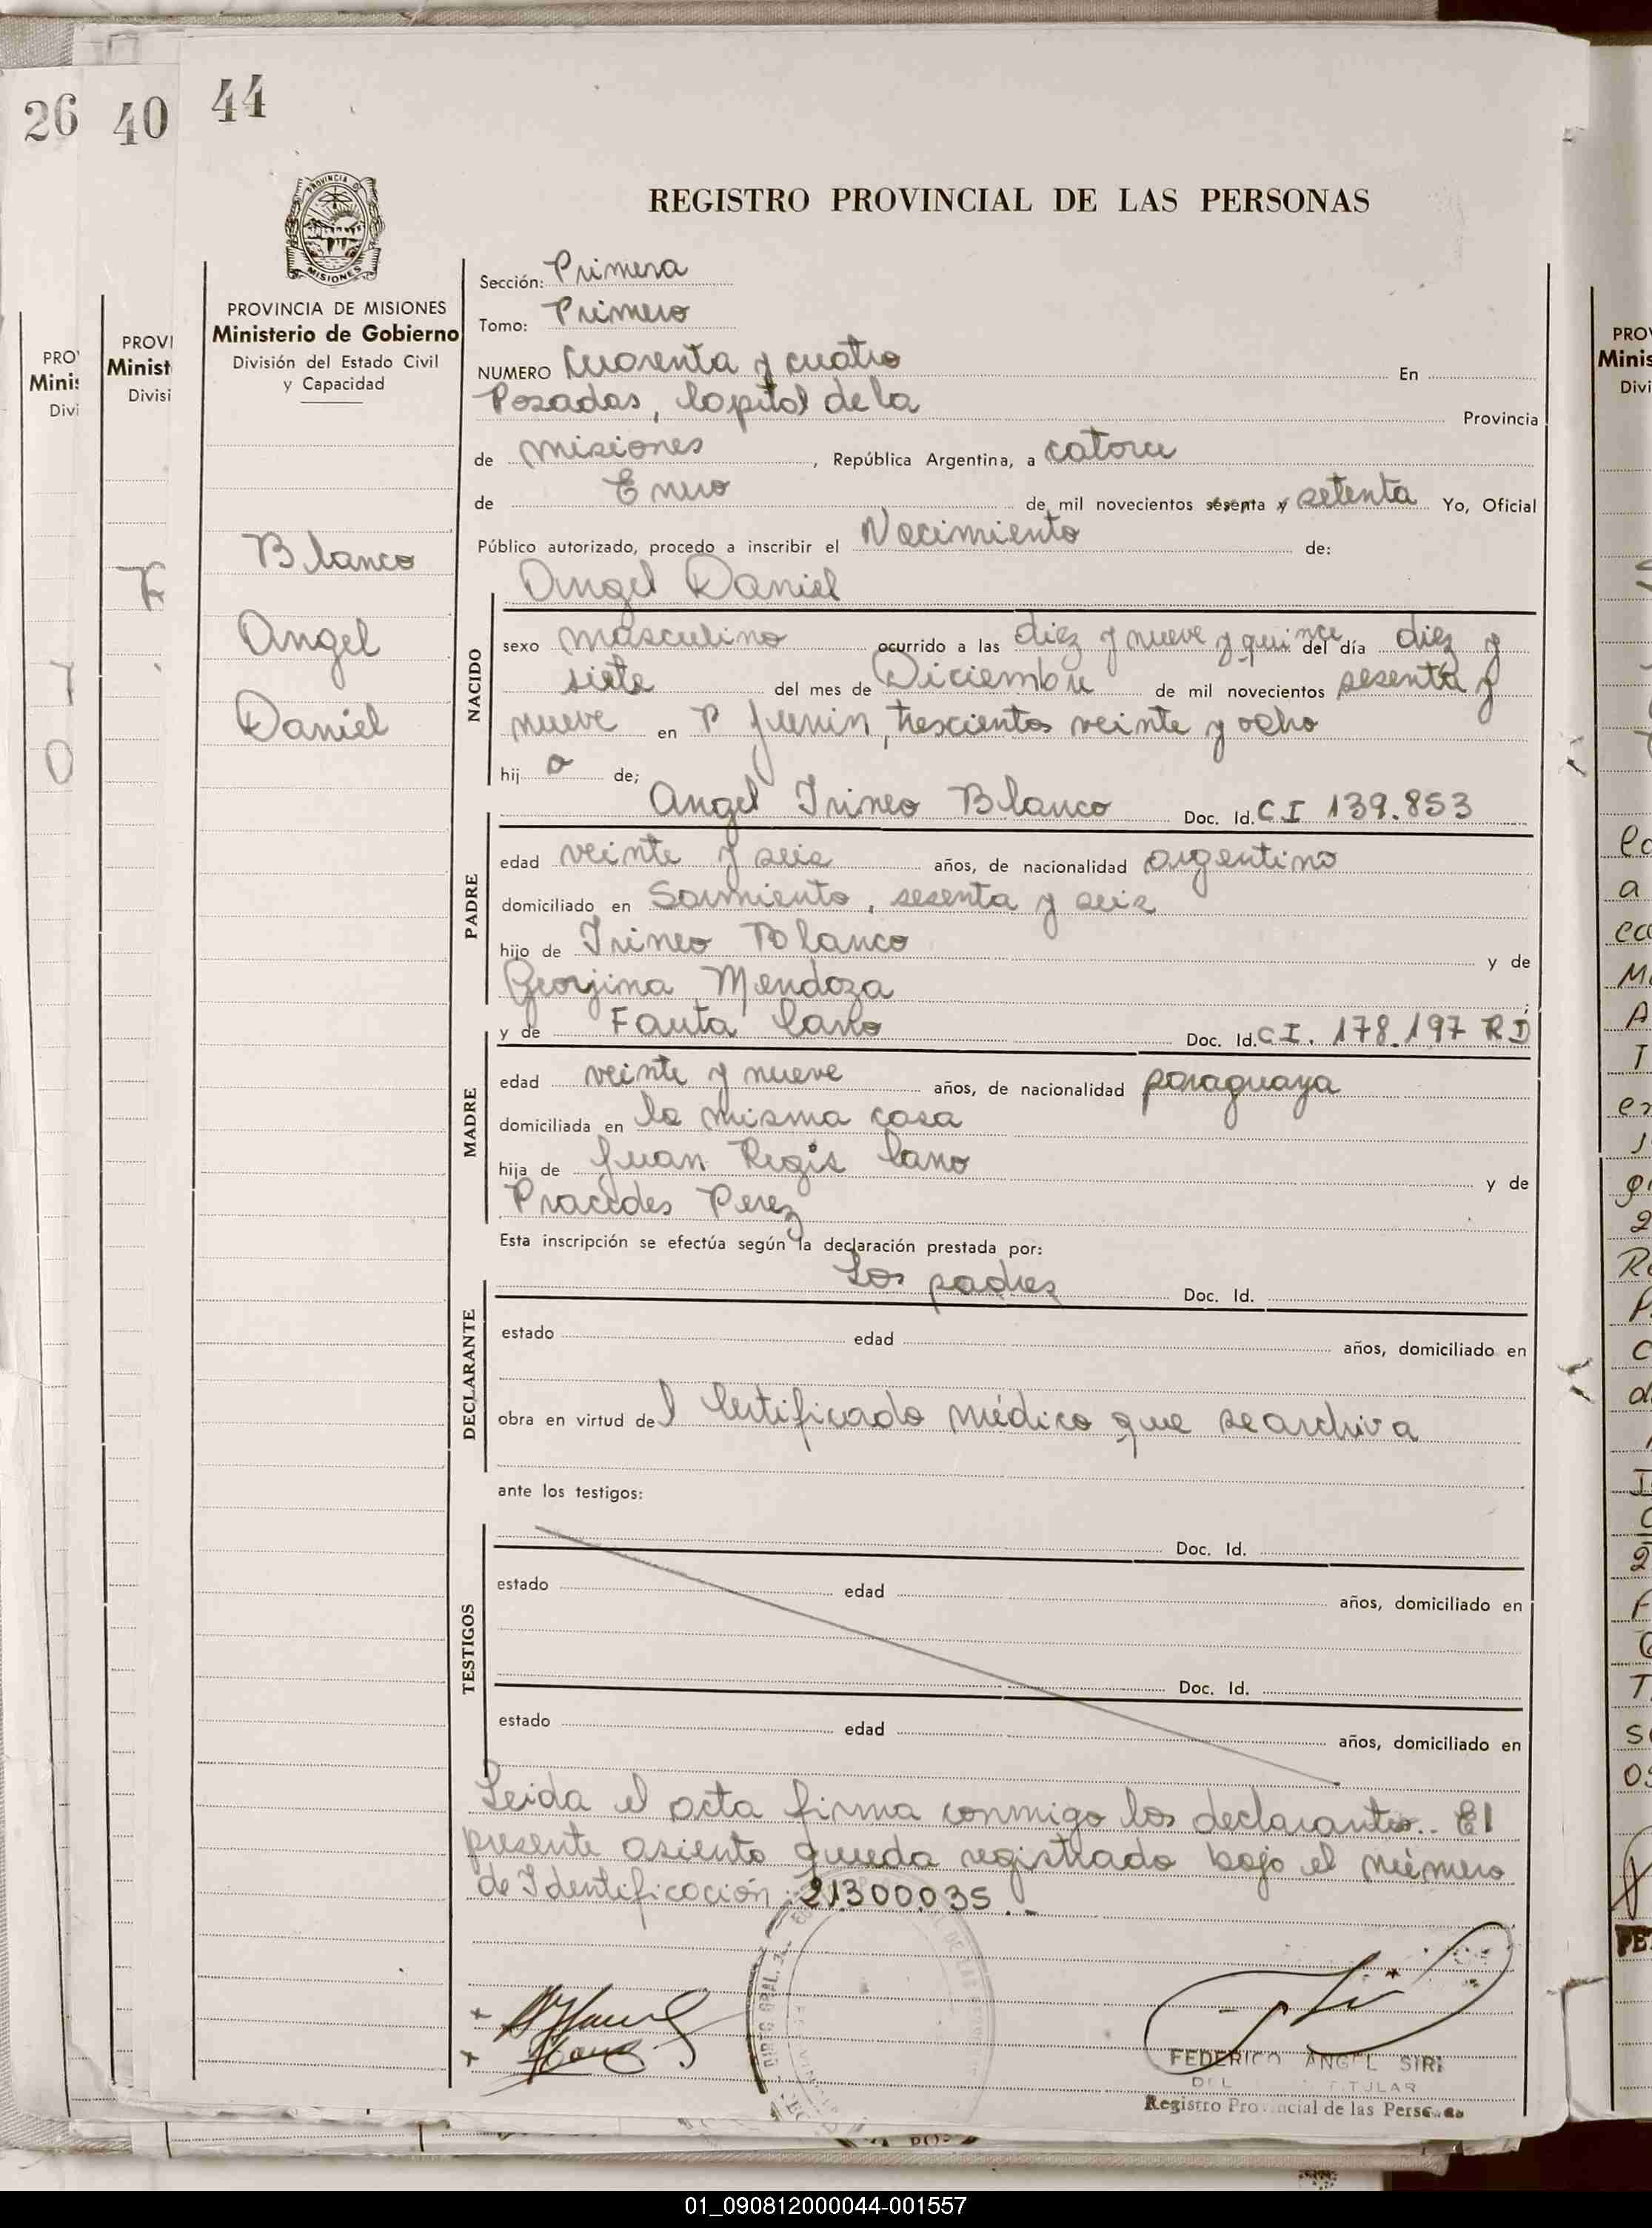 26 40 44
PROVINCIA DE MISIONES
REGISTRO PROVINCIAL DE LAS PERSONAS
PROVINCIA DE MISIONES
Ministerio de Gobierno
División del Estado Civil
y Capacidad
Blanco
Angel
Daniel
Sección: Primera
Tomo: Primero
NUMERO Cuarenta y cuatro En
Posadas, Capital de la Provincia
de misiones, República Argentina, a catorce
de Enero de mil novecientos sesenta y setenta Yo, Oficial
Público autorizado, procedo a inscribir el Nacimiento de:
Angel Daniel
NACIDO
sexo masculino ocurrido a las diez y nueve y quince del día diez y
siete del mes de Diciembre de mil novecientos sesenta y
nueve en P Junin, trescientos veinte y ocho
hij o de;
Angel Irineo Blanco Doc. Id. C I 139.853
PADRE
edad veinte y seis años, de nacionalidad argentino
domiciliado en Sarmiento, sesenta y seis
hijo de Irineo Blanco y de
Georjina Mendoza ;
y de Fausta Cano Doc. Id. C I. 178.197 R D
MADRE
edad veinte y nueve años, de nacionalidad paraguaya
domiciliada en la misma casa
hija de Juan Regis Cano y de
Pracedes Perez
Esta inscripción se efectúa según la declaración prestada por:
Los padres Doc. Id.
DECLARANTE
estado edad años, domiciliado en
obra en virtud del Certificado médico que se archiva
ante los testigos:
Doc. Id.
TESTIGOS
estado edad años, domiciliado en
Doc. Id.
estado edad años, domiciliado en
Leida el acta firma conmigo los declarantes.. El
presente asiento queda registrado bajo el número
de Identificación: 21.300.035..
FEDERICO ANGEL SIRI
TITULAR
Registro Provincial de las Personas
01_090812000044-001557